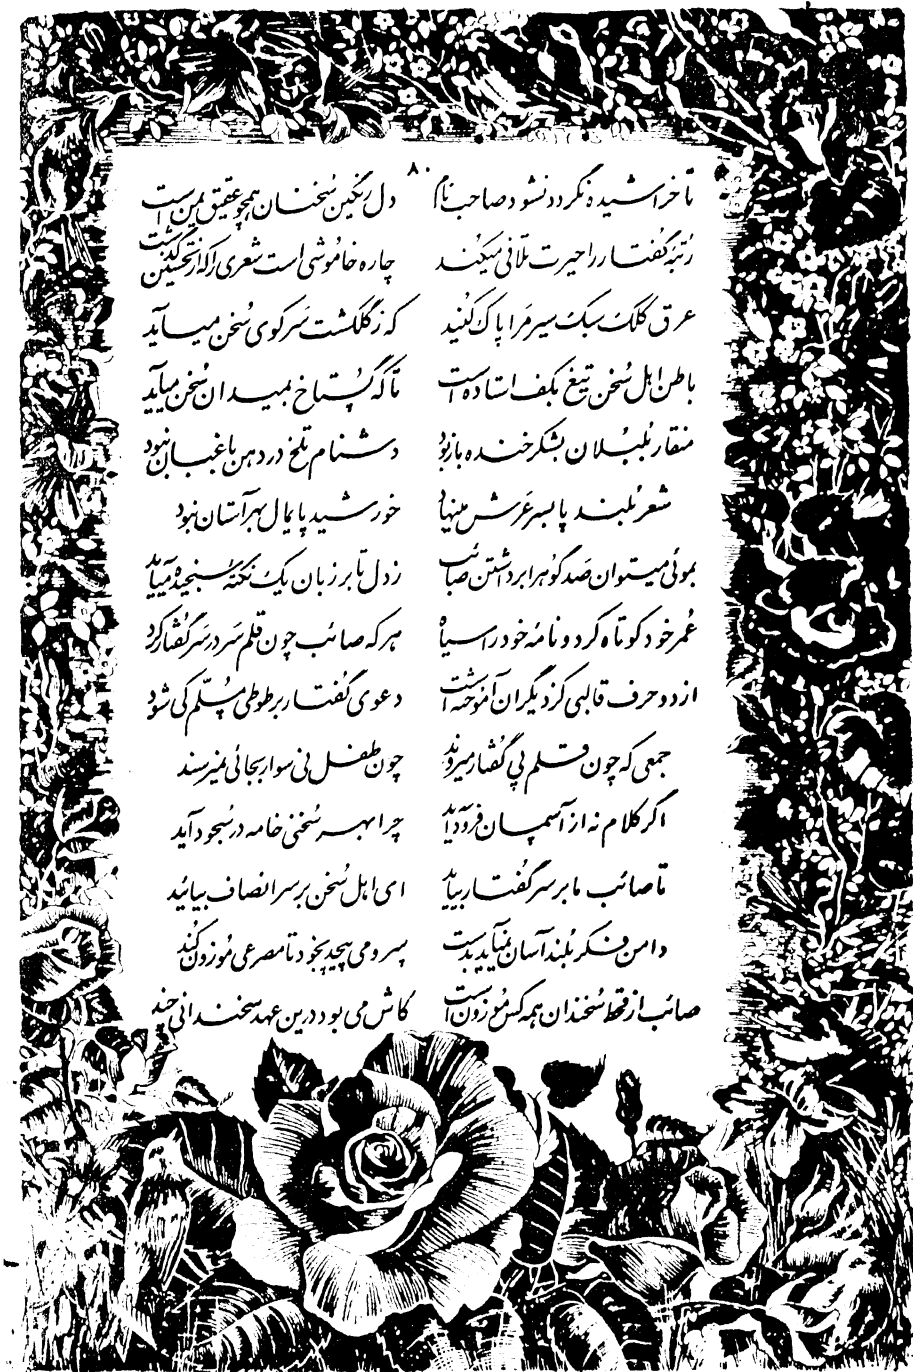 ۸۰
تا خراشیده نگردد نشود صاحب نام دل رنگین سخنان همچو عقیق یمن است
رتبهٔ گفتار را حیرت تلافی میکند چاره خاموشی است شعری را که از تحسین گذشت
عرق کلک سبک سیر مرا پاک کنید که ز گلگشت سر کوی سخن میآید
باطن اهل سخن تیغ بکف استاده است تا که گستاخ بمیدان سخن میآید
منقار بلبلان بشکر خنده باز بود دشنام تلخ در دهن باغبان نبود
شعر بلند پا بسر عرش مینهاد خورشید پایمال بهر آستان نبود
بموئی میتوان صد گوهر ابرداشتن صائب ز دل تا بر زبان یک نکتهٔ سنجیده میآید
عمر خود کوتاه کرد و نامهٔ خود را سیاه هر که صائب چون قلم سر در سر گفتار کرد
از دو حرف قالبی کز دیگران آموخته است دعوی گفتار بر طوطی مسلّم کی شود
جمعی که چون قلم پی گفتار میروند چون طفل نی سوار بجائی نمیرسند
اگر کلام نه از آسمان فرود آید چرا بهر سخنی خامه در سجود آید
تا صائب ما بر سر گفتار بیاید ای اهل سخن بر سر انصاف بیائید
دامن فکر بلند آسان نمیآید بدست سرو می پیچد بخود تا مصرعی موزون کند
صائب از قحط سخندان همه کس موزون است کاش می بود درین عهد سخندانی چند